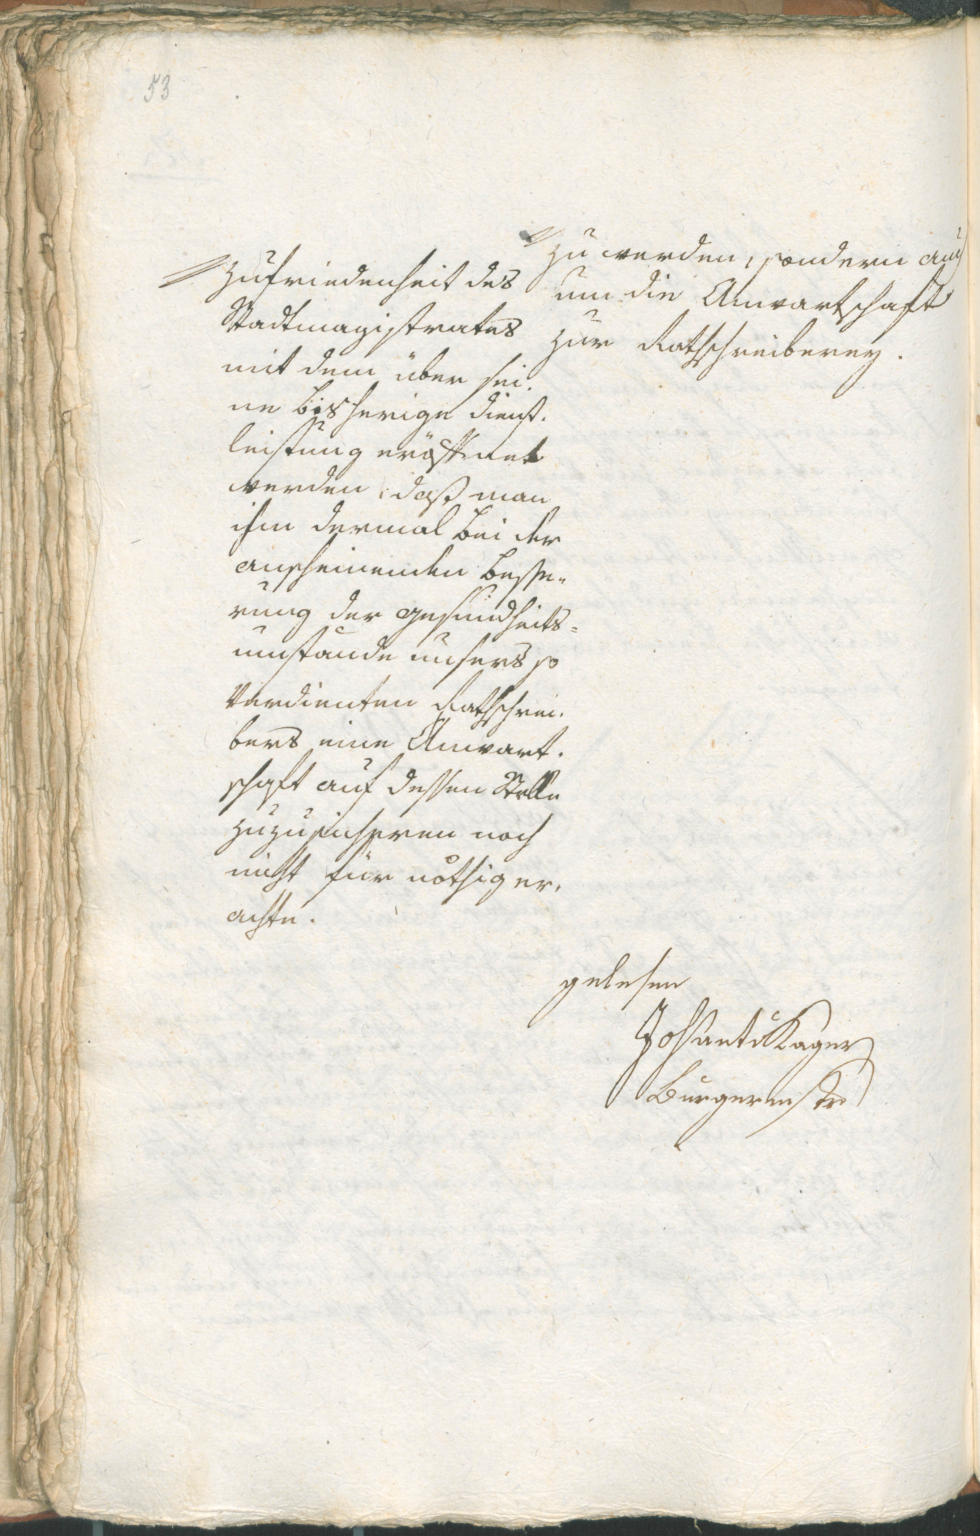 53
Zufriedenheit des
Stadtmagistrates
mit dem über sei-
ne bisherige Dienst-
leistung eröffnet
werden, daß man
ihm dermal bei der
anscheinenden Besse-
rung der Gesundheits-
umstände unsers so
verdienten Rathschrei-
bers eine Anwart-
schaft auf dessen Stelle
zuzusichern noch
nicht für nöthig er-
achte.
zu werden, sondern auch
um die Anwartschaft
zur Rathschreiberey.
gelesen
Kager
Burgermstr